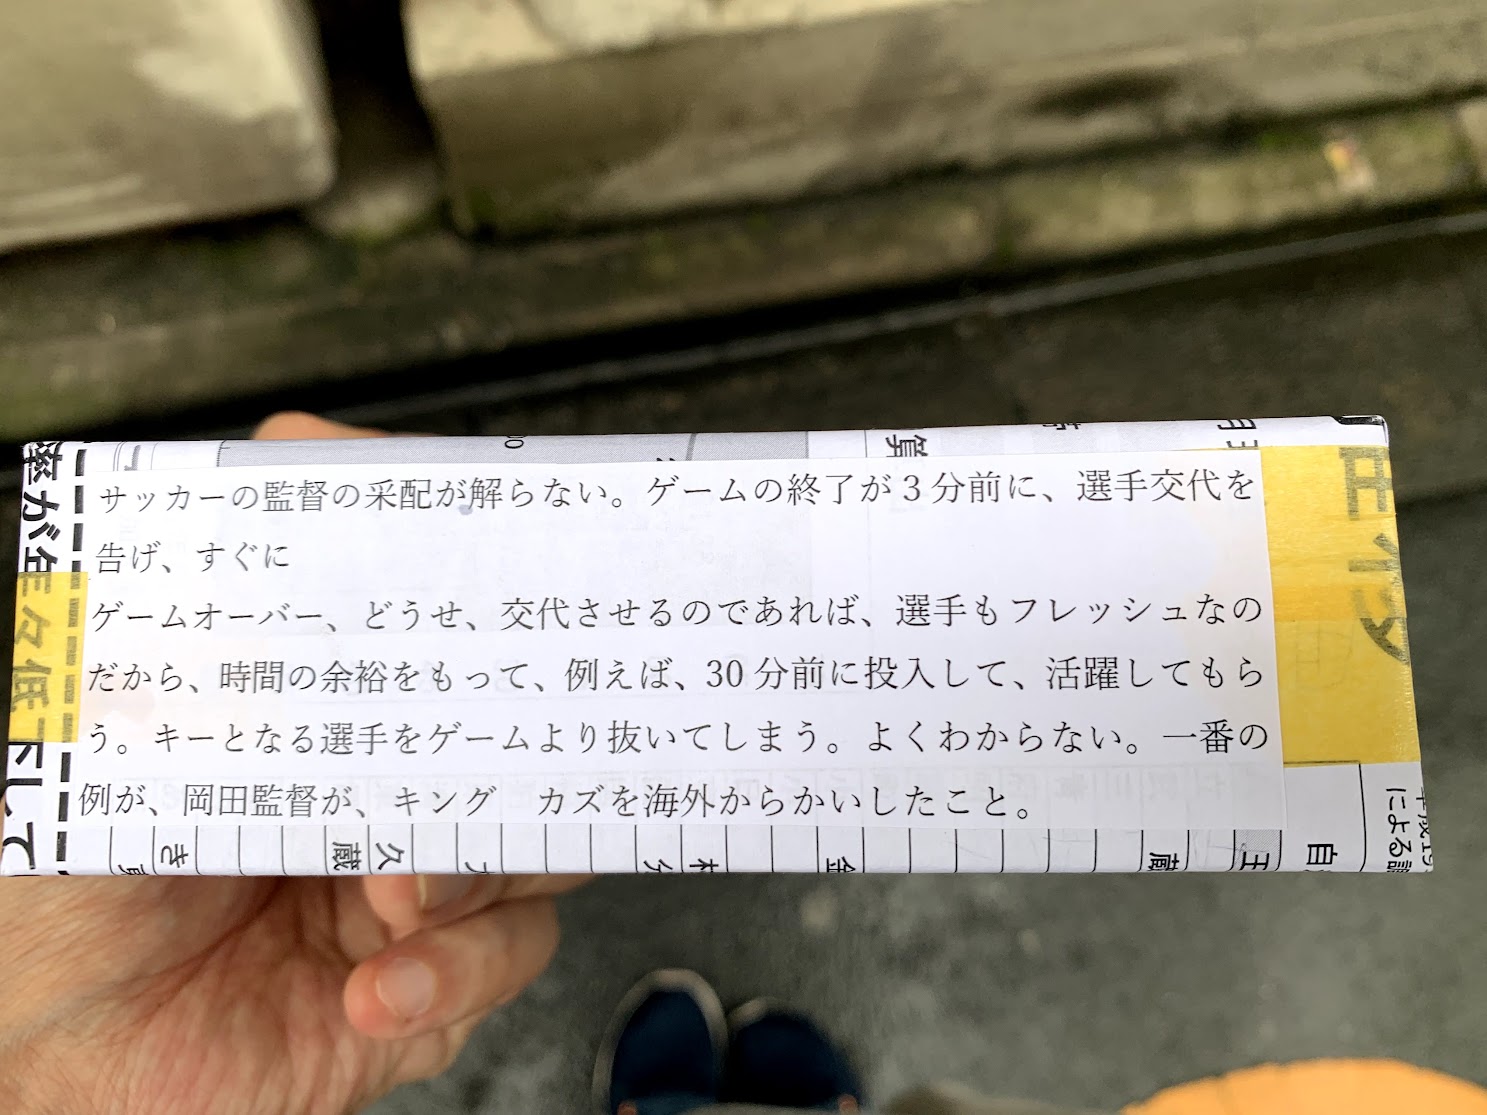 サッカーの監督の采配が解らない。ゲームの終了が３分前に、選手交代を
告げ、すぐに
ゲームオーバー、どうせ、交代させるのであれば、選手もフレッシュなの
だから、時間の余裕をもって、例えば、30 分前に投入して、活躍してもら
う。キーとなる選手をゲームより抜いてしまう。よくわからない。一番の
例が、岡田監督が、キング　カズを海外からかいしたこと。
率が年々低下して
算
蔵
久
き
蔵
による